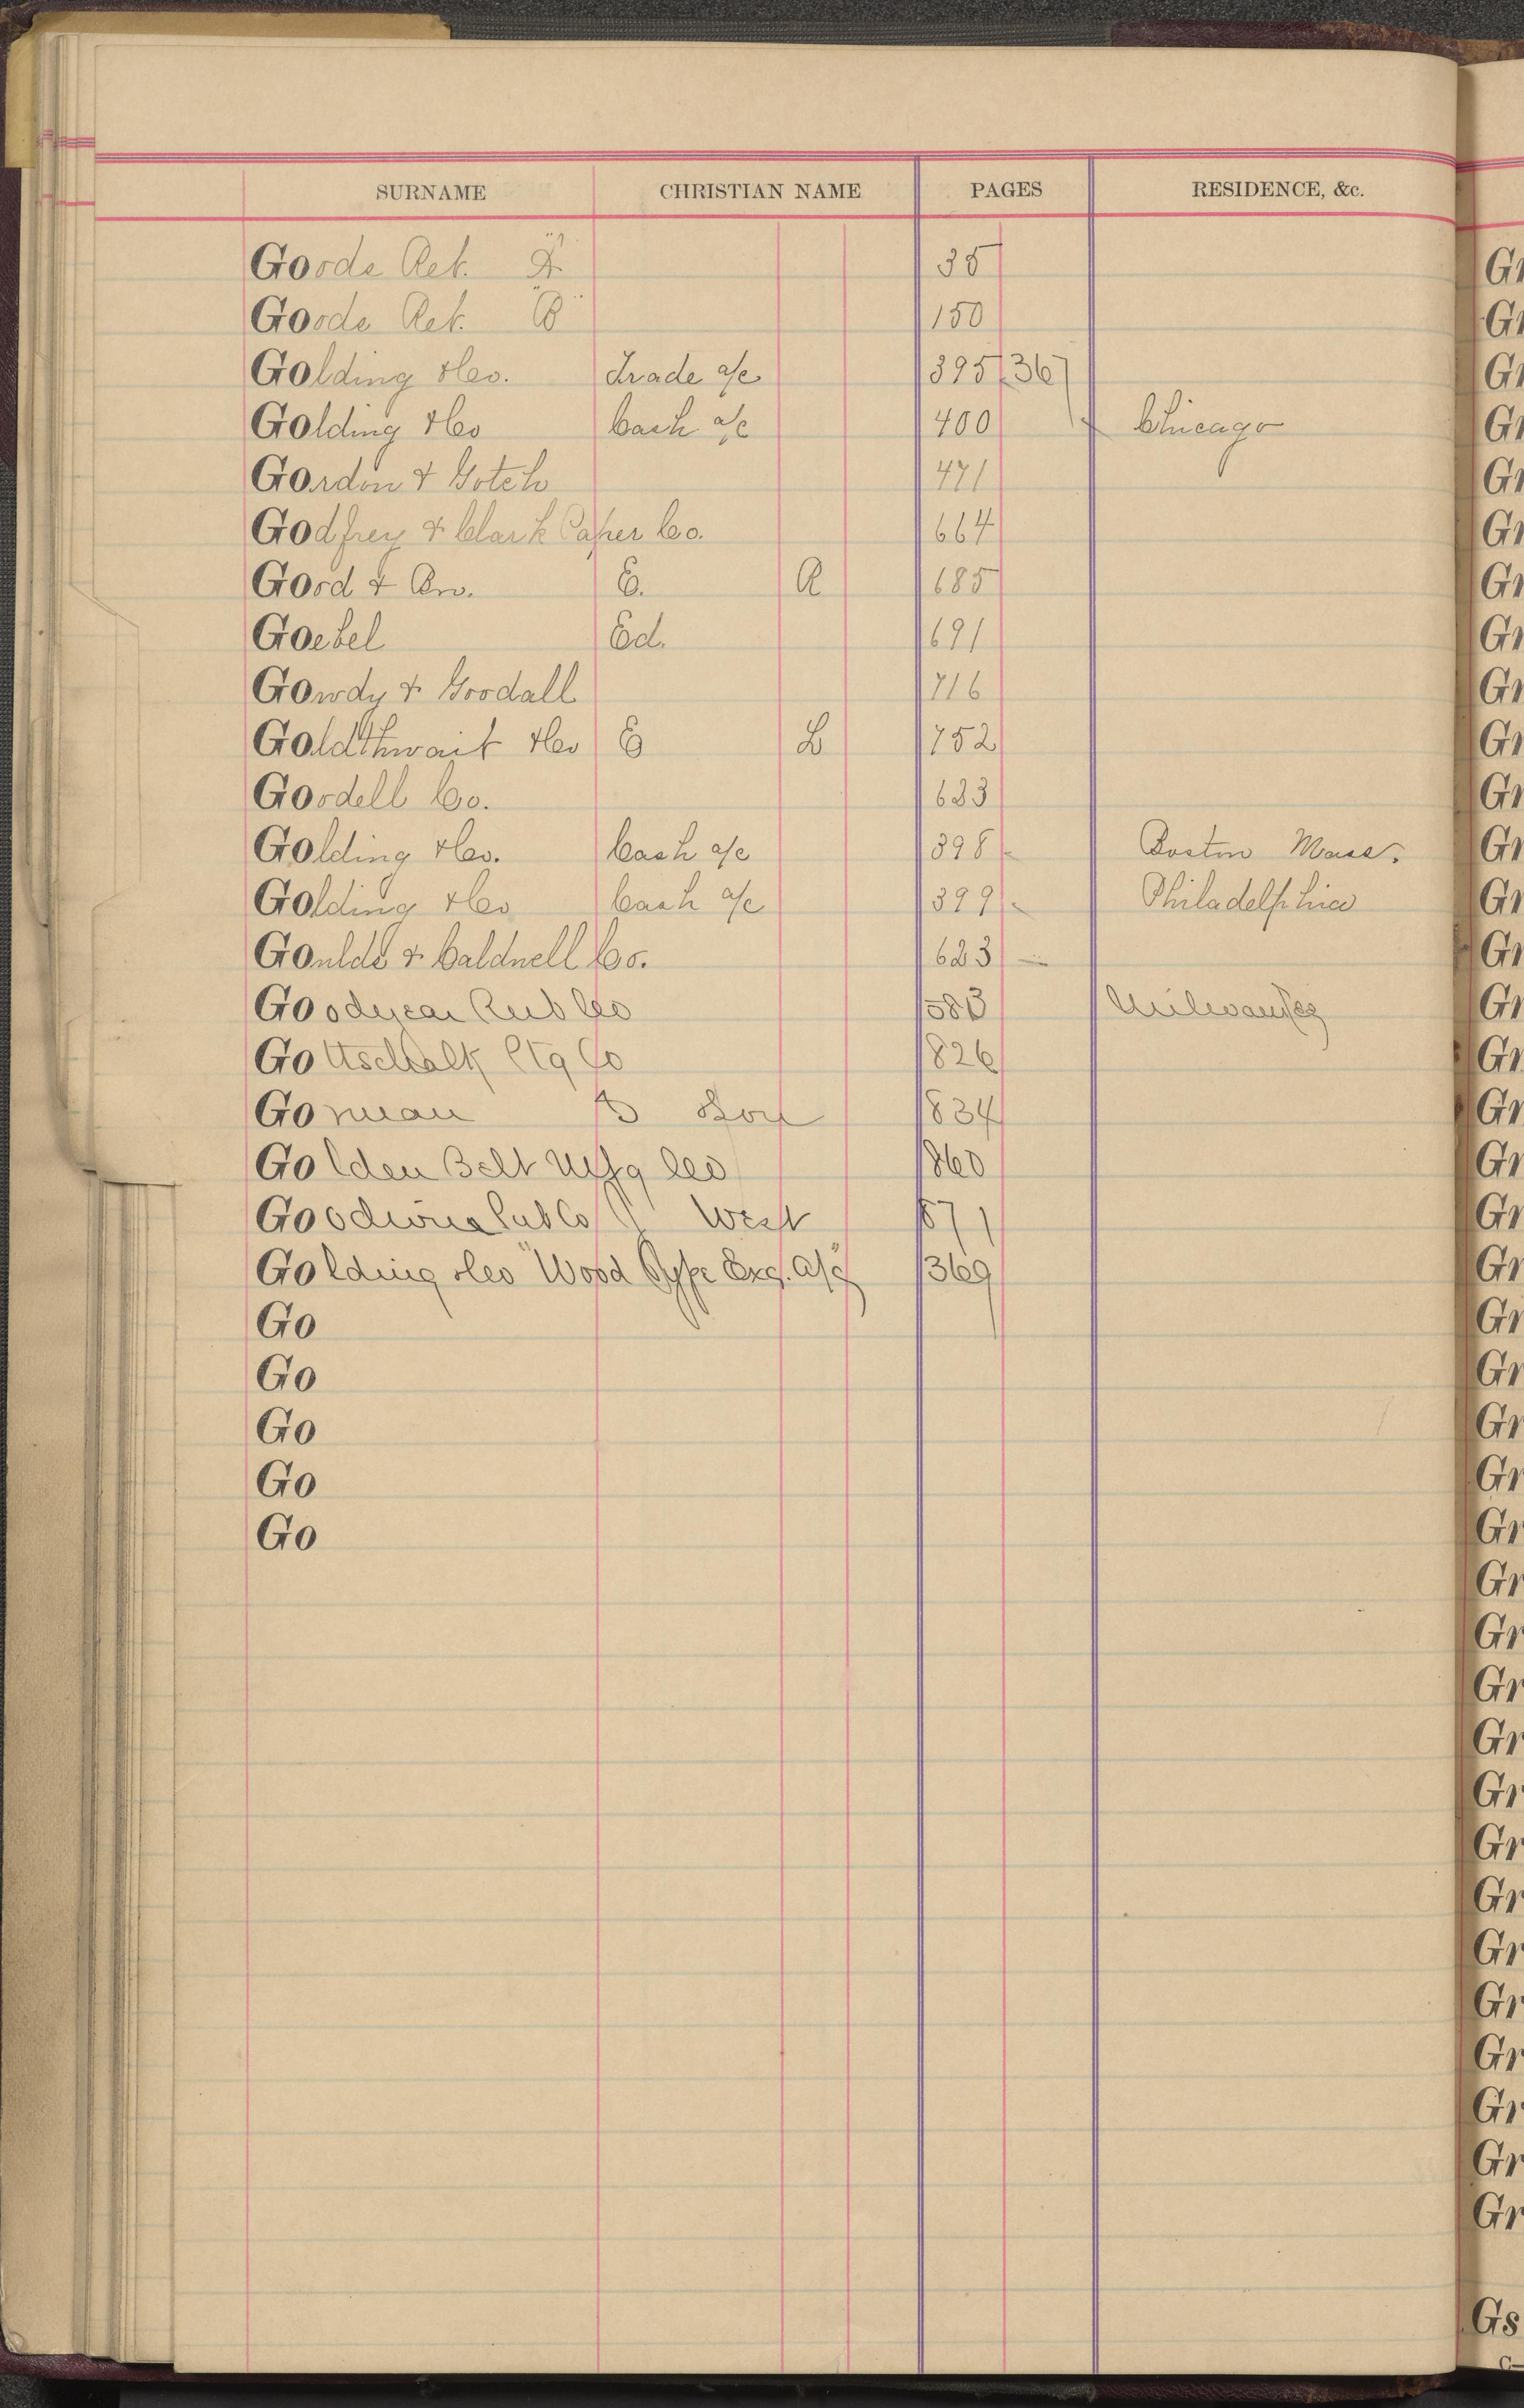 SURNAME CHRISTIAN NAME PAGES RESIDENCE, &c.
Goods Ret. "A" 35
Goods Ret. "B" 150
Golding & Co. Trade a/c 395 367
Golding & Co Cash a/c 400 Chicago
Gordon & Gotch 471
Godfrey & Clark Paper Co. 664
Good & Bro. E. R 685
Goebel Ed. 691
Gowdy & Goodall 716
Goldthwait & Co E L 752
Goodell Co. 623
Golding & Co. Cash a/c 398 Boston Mass.
Golding & Co Cash a/c 399 Philadelphia
Goulds & Caldwell Co. 623
Goodyear Rub Co 583 Milwaukee
Gottschalk Ptg Co 826
Gorman & Son 834
Golden Belt Mfg Co 860
Goodwin Pub Co West 871
Golding & Co "Wood Type Exc. a/c" 369
Go
Go
Go
Go
Go
Gs